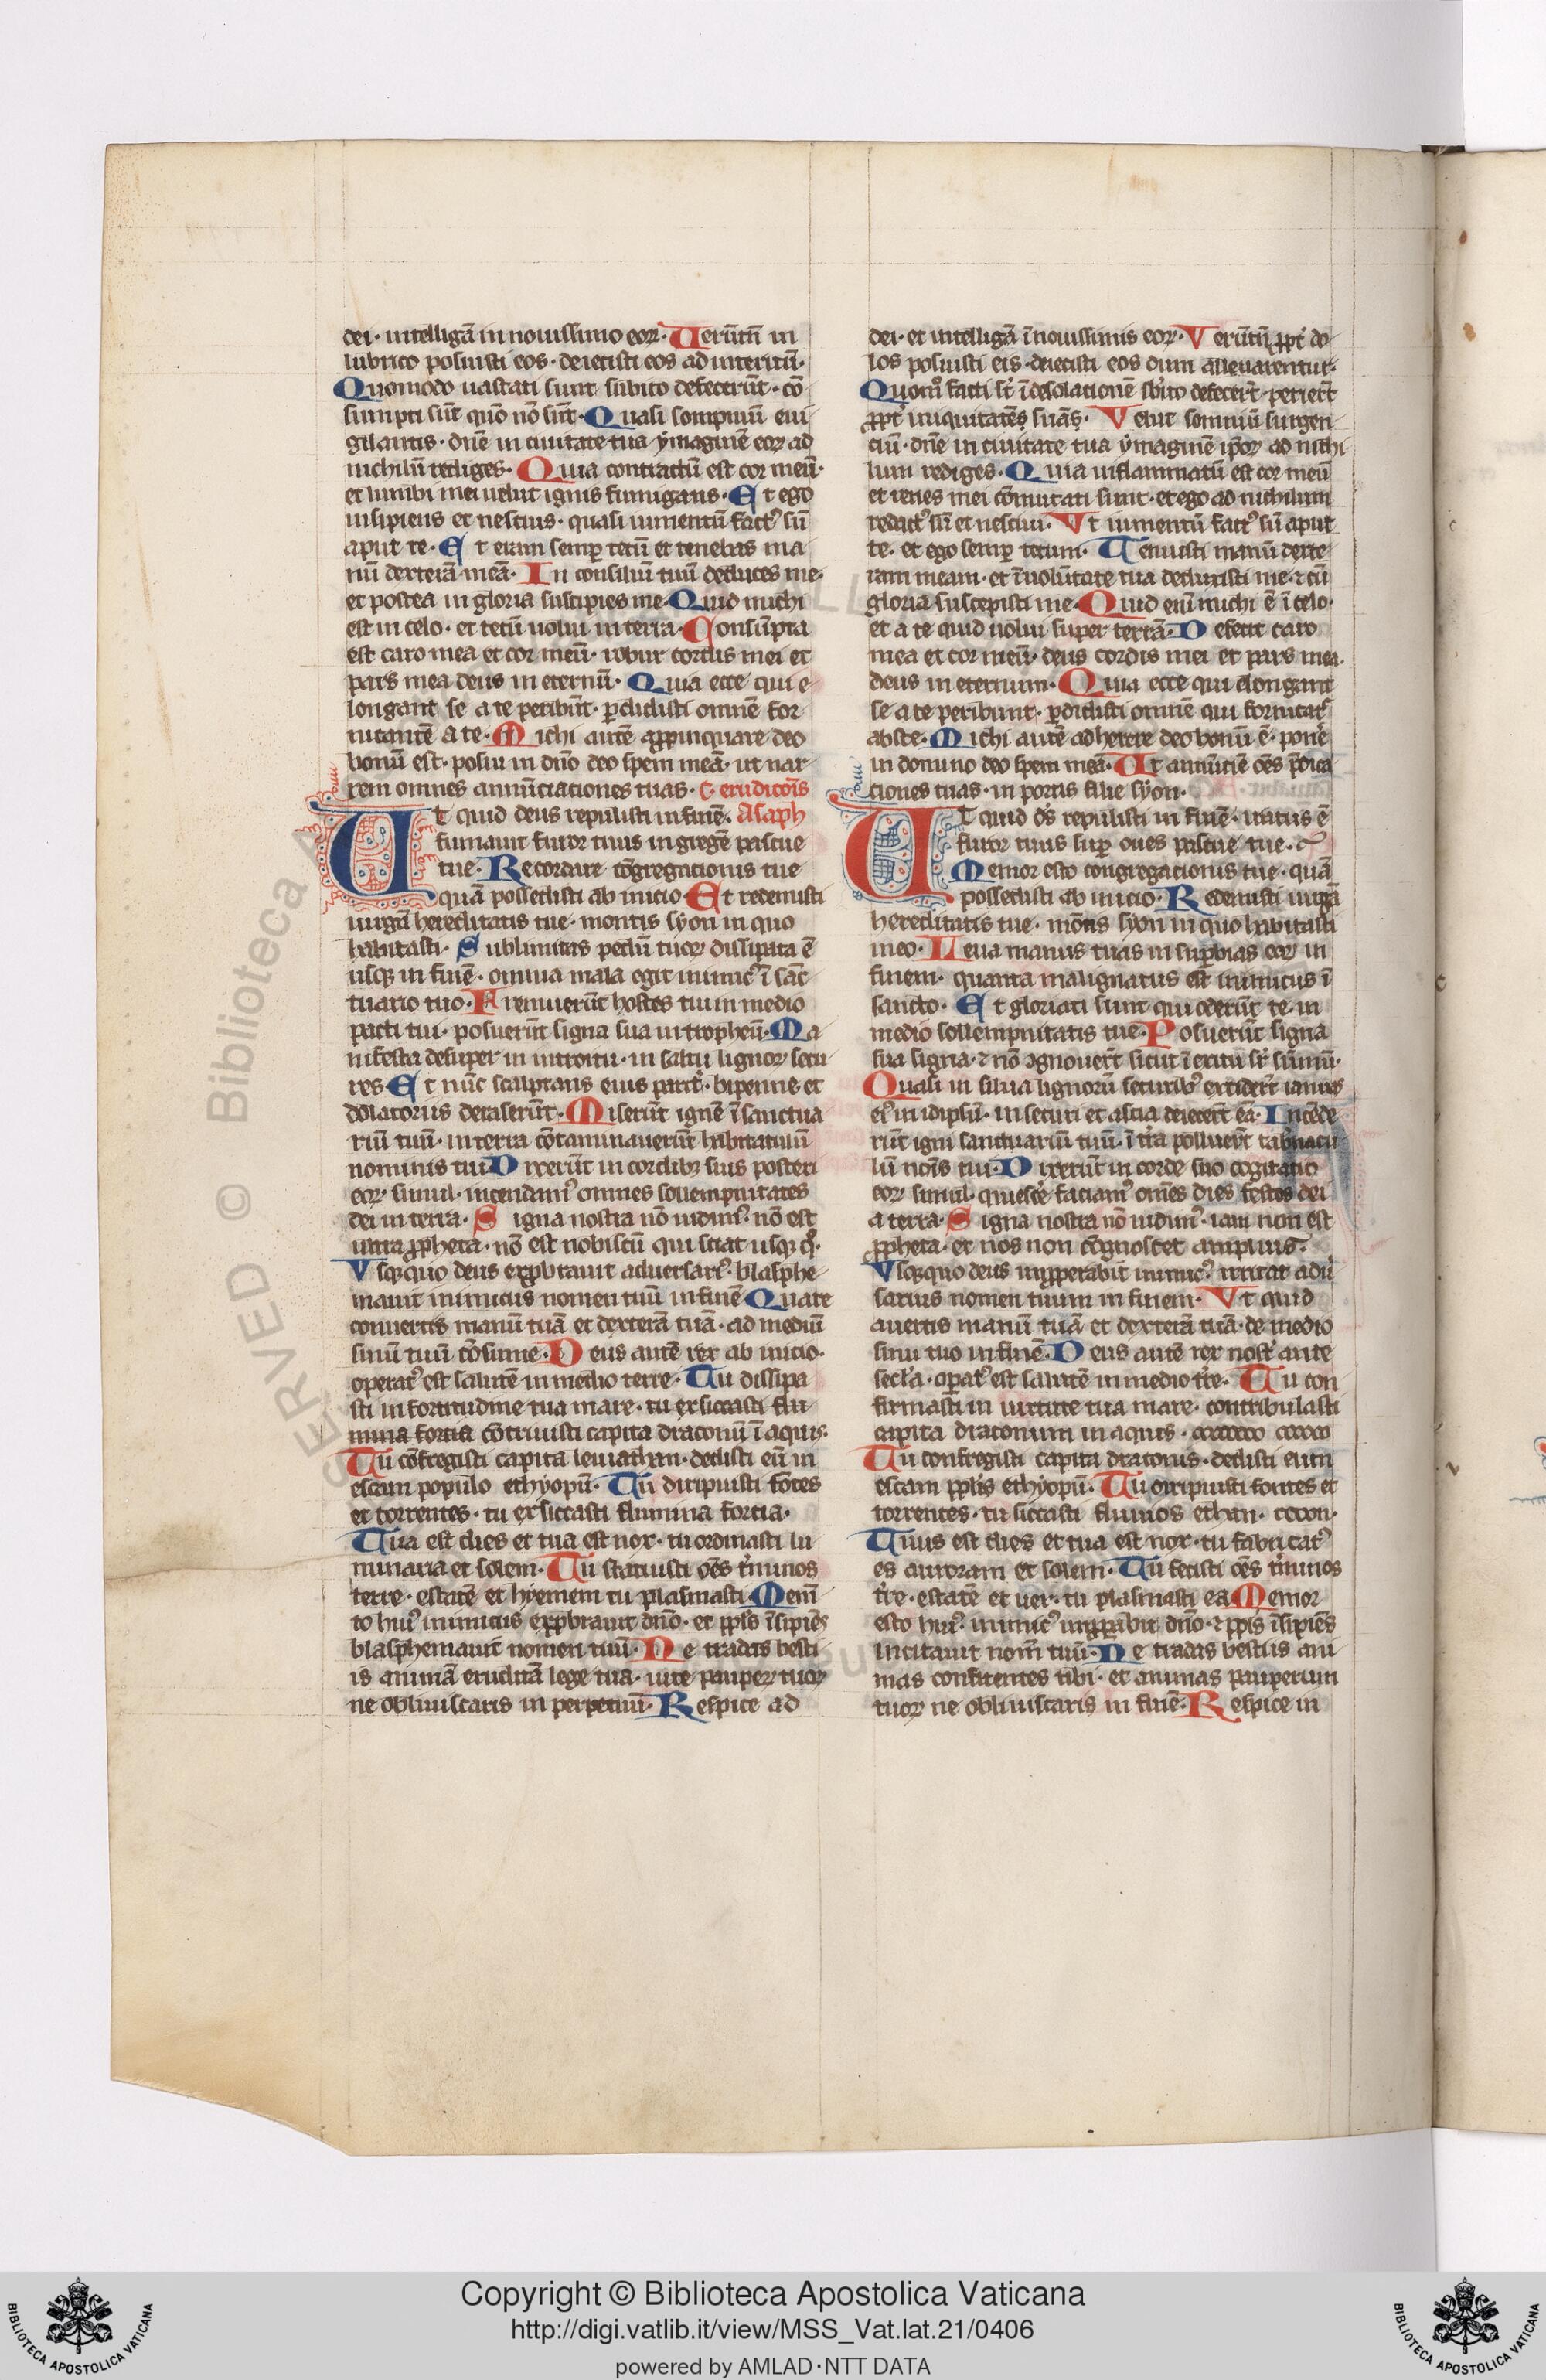 dei· intelligā in nouissimo eoꝝ· Uerūtn̄ in
lubrico posuisti eos· deiecisti eos ad interitū·
Quomodo uastati sunt subito defecerūt· cō
sumpti sūt quō nō sūt· Quasi sompniū eui
gilantis· dn̄e in ciuitate tua ymaginē eoꝝ ad
nichilū rediges· Quia contractū est cor meū·
et lumbi mei uelut ignis fumigans· Et ego
insipiens et nescius· quasi iumentū factꝰ sū
aput te· Et eram semꝑ tecū et tenebas ma
nū dexterā meā· In consiliū tuū deduces me·
et postea in gloria suscipies me· Quid michi
est in celo· et tecū uolui in terra· Consūpta
est caro mea et cor meū· robur cordis mei et
pars mea deus in eternū· Quia ecce qui e
longant se a te peribūt· ꝑdidisti omnē for
nicantē a te· Michi autē aꝓpinquare deo
bonū est· posui in dn̄o deo spem meā· ut nar
rem omnes annūctaciones tuas· C· erudicōis
Ut quid deus repulisti in finē· Asaph
fumauit furor tuus in gregē pascue
tue· Recordare cōgregacionis tue
quā possedisti ab inicio Et redemisti
uirgā hereditatis tue· montis syon in quo
habitasti· Sublimitas pedū tuoꝝ dissipata ē
usqꝫ in finē· omnia mala egit inimicꝰ ī sanc
tuario tuo· Fremuerūt hostes tui in medio
pacti tui· posuerūt signa sua in tropheū· Ma
nifesta desuper in introitu· in saltu lignoꝝ secu
res Et nūc scalpturas eius parit̄· bipenne et
dolatoriis deraserūt· Miserūt ignē ī sanctua
riū tuū· in terra cōtaminauerūt habitaculū
nominis tui Dixerūt in cordibꝫ suis posteri
eoꝝ simul· incendamꝰ omnes sollempnitates
dei in terra· Signa nostra nō uidimꝰ· nō est
ultra ꝓpheta· nō est nobiscū qui sciat usqꝫ qͦ·
Vsqꝫquo deus exꝓbrauit aduersariꝰ· blasphe
mauit inimicus nomen tuū in finē Quare
conuertis manū tuā et dexterā tuā· ad mediū
sinū tuū cōsume· Deus autē rex ab inicio·
operatꝰ est salutē in medio terre· Tu dissipa
sti in fortitudine tua mare· tu exsiccasti flu
mina fortia cōtriuisti capita draconū ī aquis·
Tu cōfregisti capita leuiathan· dedisti eū in
escam populo ethyopū· Tu diripuisti fōtes
et torrentes· tu exsiccasti flumina fortia·
Tua est dies et tua est nox· tu ordinasti lu
minaria et solem· Tu statuisti oēs t̄minos
terre· estatē et hyemem tu plasmasti Memē
to huiꝰ inimicus exꝓbrauit dn̄o· et ppl̄s īsipiēs
blasphemauit nomen tuū· Ne tradas besti
is animā eruditā lege tua· uite pauꝑeꝝ tuoꝝ
ne obliuiscaris in perpetuū· Respice ad
dei· et intelligā ī nouissimis eoꝝ· Verūtn̄ ꝓpt̄ do
los posuisti eis· deiecisti eos dum alleuarentur·
Quomͦ facti sīt ī desolacionē sb̄ito defecert̄· periert̄
ꝓpt̄ iniquitatēs suās· Velut somniū surgen
ciū· dn̄e in ciuitate tua ymaginē ip̄oꝝ ad nichi
lum rediges· Quia inflammatū est cor meū
et renes mei cōmutati sunt· et ego ad nichilum
redactꝰ sū et nesciui· Vt iumentū factꝰ sū aput
te· et ego semꝑ tecum· Tenuisti manū dexte
ram meam· et ī uolūtate tua deduxisti me· ⁊ cū
gloria suscepisti me· Quid eni michi ē ī celo·
et a te quid uolui super terrā· Defecit caro
mea et cor meū· deus cordis mei et pars mea·
deus in eternum· Quia ecce qui elongant
se a te peribunt· ꝑdidisti omnē qui fornicat̄
abste· Michi autē adherere deo bonū ē· pone̅
in domino deo spem meā· Ut annūciē oēs p̄dica
ciones tuas· in portis filie syon·
Ut quid ds̄ repulisti in finē· iratus ē
furor tuus suꝑ oues pascue tue·
Memor esto congregacionis tue· quā
possedisti ab inicio· Redemisti uirgā
hereditatis tue· mōtis syon in quo habitasti
in eo· Leua manus tuas in suꝑbias eoꝝ in
finem· quanta malignatus est inimicus ī
sancto· Et gloriati sunt qui oderūt te· in
medio sollempnitatis tue· Posuerūt signa
sua signa· ⁊ nō ꝯgnouert̄ sicut ī exitu sꝑ sūmū·
Quasi in silua lignorū securibꝰ excidert̄ ianuas
eiꝰ in idipsū· in securi et ascia deiecert̄ eā· Incēde
rūt igni sanctuariū tuū· ī t̄ra polluert̄ tab̄nacu
lū nōis tui· Dixerūt in corde suo cogitatio
eoꝝ simul· quiescē faciamꝰ omēs dies festos dei
a terra· Signa nostra nō uidimꝰ· iam non est
ꝓpheta· et nos non cōgnoscet amplius·
Vsqꝫquo deus inꝓperabit inimicꝰ irritat adū
sarius nomen tuum in finem· Vt quid
auertis manū tuā et dexterā tuā· de medio
sinu tuo in finē· Deus autē rex nost̄ ante
secl̄a· oꝑatꝰ est salutē in medio t̄re· Tu con
firmasti in uirtute tua mare· contribulasti
capita draconum in aquis·
Tu confregisti capita draconis· dedisti eum
escam ppl̄is ethyopū· Tu diripuisti fontes et
torrentes· tu siccasti fluuios ethan·
Tuus est dies et tua est nox· tu fabricatꝰ
es auroram et solem· Tu fecisti oēs t̄minos
t̄re· estatē et uer· tu plasmasti ea Memor
esto huiꝰ· inimicꝰ inꝓꝑabit dn̄o· ⁊ ppl̄s īsipiēs
incitauit nom̄ tuū· Ne tradas bestiis ani
mas confitentes tibi· et animas pauperum
tuoꝝ ne obliuiscaris in finē· Respice in
RESERVED © Biblioteca A
Copyright © Biblioteca Apostolica Vaticana
http://digi.vatlib.it/view/MSS_Vat.lat.21/0406
powered by AMLAD·NTT DATA
BIBLIOTECA APOSTOLICA VATICANA
BIBLIOTECA APOSTOLICA VATICANA